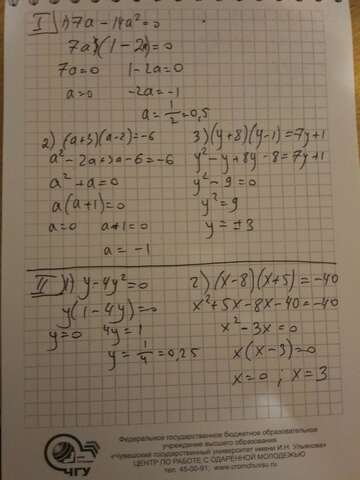 I 1) 7a - 14a² = 0
7a(1 - 2a) = 0
7a = 0 1 - 2a = 0
a = 0 -2a = -1
a = 1/2 = 0,5
2) (a+3)(a-2) = -6
a² - 2a + 3a - 6 = -6
a² + a = 0
a(a+1) = 0
a = 0 a+1 = 0
a = -1
3) (y+8)(y-1) = 7y+1
y² - y + 8y - 8 = 7y+1
y² - 9 = 0
y² = 9
y = ±3
II 1) y - 4y² = 0
y(1 - 4y) = 0
y = 0 4y = 1
y = 1/4 = 0,25
2) (x-8)(x+5) = -40
x² + 5x - 8x - 40 = -40
x² - 3x = 0
x(x-3) = 0
x = 0 ; x = 3
ЧГУ
Федеральное государственное бюджетное образовательное
учреждение высшего образования
«Чувашский государственный университет имени И.Н. Ульянова»
ЦЕНТР ПО РАБОТЕ С ОДАРЕННОЙ МОЛОДЕЖЬЮ
тел. 45-00-91; www.cromchuvsu.ru